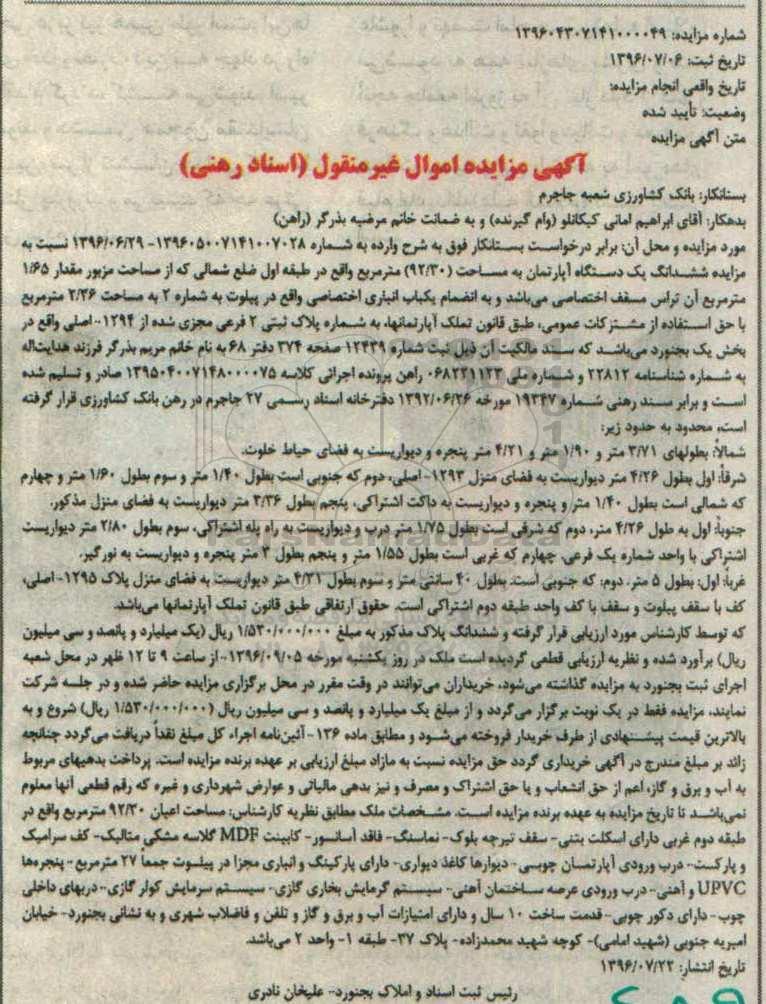 شماره مزایده: ۱۳۹۶۰۴۳۰۷۱۴۱۰۰۰۰۴۹
تاریخ ثبت: ۱۳۹۶/۰۷/۰۶
تاریخ واقعی انجام مزایده:
وضعیت: تأیید شده
متن آگهی مزایده
آگهی مزایده اموال غیرمنقول (اسناد رهنی)
بستانکار: بانک کشاورزی شعبه جاجرم
بدهکار: آقای ابراهیم امانی کیکانلو (وام گیرنده) و به ضمانت خانم مرضیه بذرگر (راهن)
مورد مزایده و محل آن: برابر درخواست بستانکار فوق به شرح وارده به شماره ۱۳۹۶۰۵۰۰۷۱۴۱۰۰۷۰۲۸- ۱۳۹۶/۰۶/۲۹ نسبت به
مزایده ششدانگ یک دستگاه آپارتمان به مساحت (۹۲/۳۰) مترمربع واقع در طبقه اول ضلع شمالی که از مساحت مزبور مقدار ۱/۶۵
مترمربع آن تراس مسقف اختصاصی می‌باشد و به انضمام یکباب انباری اختصاصی واقع در پیلوت به شماره ۲ به مساحت ۲/۳۶ مترمربع
با حق استفاده از مشترکات عمومی، طبق قانون تملک آپارتمانها، به شماره پلاک ثبتی ۲ فرعی مجزی شده از ۱۲۹۴- اصلی واقع در
بخش یک بجنورد می‌باشد که سند مالکیت آن ذیل ثبت شماره ۱۲۴۳۹ صفحه ۳۷۴ دفتر ۶۸ به نام خانم مریم بذرگر فرزند هدایت‌اله
به شماره شناسنامه ۲۲۸۱۲ و شماره ملی ۰۶۸۲۳۱۱۲۳ راهن پرونده اجرائی کلاسه ۱۳۹۵۰۴۰۰۷۱۴۸۰۰۰۰۷۵ صادر و تسلیم شده
است و برابر سند رهنی شماره ۱۹۳۴۷ مورخه ۱۳۹۲/۰۶/۲۶ دفترخانه اسناد رسمی ۲۷ جاجرم در رهن بانک کشاورزی قرار گرفته
است، محدود به حدود زیر:
شمالاً: بطولهای ۳/۷۱ متر و ۱/۹۰ متر و ۴/۲۱ متر پنجره و دیواریست به فضای حیاط خلوت.
شرقاً: اول بطول ۴/۲۶ متر دیواریست به فضای منزل ۱۲۹۳- اصلی، دوم که جنوبی است بطول ۱/۴۰ متر و سوم بطول ۱/۶۰ متر و چهارم
که شمالی است بطول ۱/۴۰ متر و پنجره و دیواریست به داکت اشتراکی، پنجم بطول ۳/۳۶ متر دیواریست به فضای منزل مذکور.
جنوبا: اول به طول ۴/۲۶ متر، دوم که شرقی است بطول ۱/۷۵ متر درب و دیواریست به راه پله اشتراکی، سوم بطول ۲/۸۰ متر دیواریست
اشتراکی با واحد شماره یک فرعی، چهارم که غربی است بطول ۱/۵۵ متر و پنجم بطول ۳ متر پنجره و دیواریست به نورگیر.
غرباً: اول: بطول ۵ متر، دوم: که جنوبی است، بطول ۴۰ سانتی متر و سوم بطول ۴/۳۱ متر دیواریست به فضای منزل پلاک ۱۲۹۵- اصلی،
کف با سقف پیلوت و سقف با کف واحد طبقه دوم اشتراکی است. حقوق ارتفاقی طبق قانون تملک آپارتمانها می‌باشد.
که توسط کارشناس مورد ارزیابی قرار گرفته و ششدانگ پلاک مذکور به مبلغ ۱/۵۳۰/۰۰۰/۰۰۰ ریال (یک میلیارد و پانصد و سی میلیون
ریال) برآورد شده و نظریه ارزیابی قطعی گردیده است ملک در روز یکشنبه مورخه ۱۳۹۶/۰۹/۰۵- از ساعت ۹ تا ۱۲ ظهر در محل شعبه
اجرای ثبت بجنورد به مزایده گذاشته می‌شود، خریداران می‌توانند در وقت مقرر در محل برگزاری مزایده حاضر شده و در جلسه شرکت
نمایند، مزایده فقط در یک نوبت برگزار می‌گردد و از مبلغ یک میلیارد و پانصد و سی میلیون ریال (۱/۵۳۰/۰۰۰/۰۰۰ ریال) شروع و به
بالاترین قیمت پیشنهادی از طرف خریدار فروخته می‌شود و مطابق ماده ۱۳۶- آئین‌نامه اجراء کل مبلغ نقداً دریافت می‌گردد چنانچه
زائد بر مبلغ مندرج در آگهی خریداری گردد حق مزایده نسبت به مازاد مبلغ ارزیابی بر عهده برنده مزایده است. پرداخت بدهیهای مربوط
به آب و برق و گاز، اعم از حق انشعاب و یا حق اشتراک و مصرف و نیز بدهی مالیاتی و عوارض شهرداری و غیره که رقم قطعی آنها معلوم
نمی‌باشد تا تاریخ مزایده به عهده برنده مزایده است. مشخصات ملک مطابق نظریه کارشناس: مساحت اعیان ۹۲/۳۰ مترمربع واقع در
طبقه دوم غربی دارای اسکلت بتنی- سقف تیرچه بلوک- نماسنگ- فاقد آسانسور- کابینت MDF گلاسه مشکی متالیک- کف سرامیک
و پارکت- درب ورودی آپارتمان چوبی- دیوارها کاغذ دیواری- دارای پارکینگ و انباری مجزا در پیلوت جمعاً ۲۷ مترمربع- پنجره‌ها
UPVC و آهنی- درب ورودی عرصه ساختمان آهنی- سیستم گرمایش بخاری گازی- سیستم سرمایش کولر گازی- دربهای داخلی
چوب- دارای دکور چوبی- قدمت ساخت ۱۰ سال و دارای امتیازات آب و برق و گاز و تلفن و فاضلاب شهری و به نشانی بجنورد- خیابان
امیریه جنوبی (شهید امامی)- کوچه شهید محمدزاده- پلاک ۳۷- طبقه ۱- واحد ۲ می‌باشد.
تاریخ انتشار: ۱۳۹۶/۰۷/۲۲
رئیس ثبت اسناد و املاک بجنورد- علیخان نادری